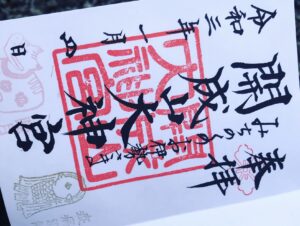 奉拝
開成山大神宮
みちのくのお伊勢さま
令和三年一月四日
開成山大神宮